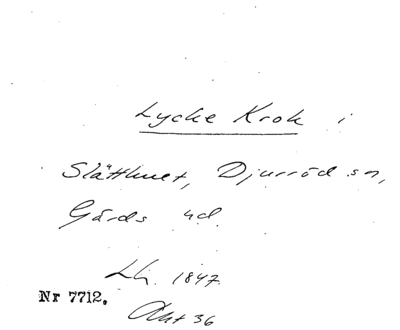 Lycke Krok i
Slätthult, Djurröd sn,
Gärds hd.
Lh. 1847
Nr 7712.
Akt 36